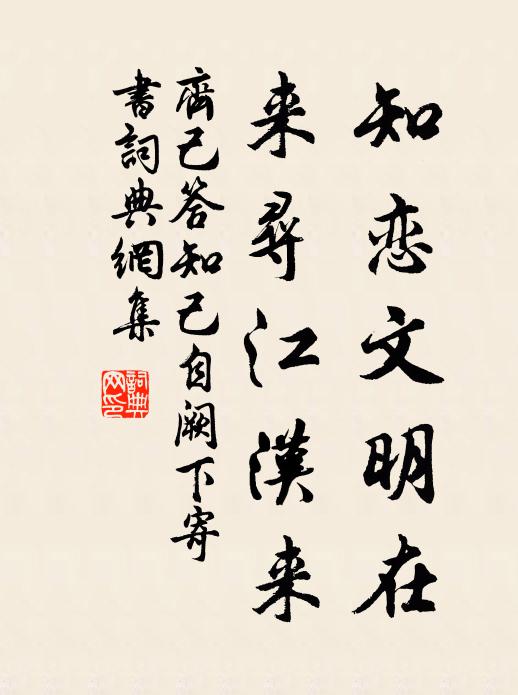 知恋文明在
来尋江漢来
齊己答知己自阙下寄
書詞典網集
詞典
网印